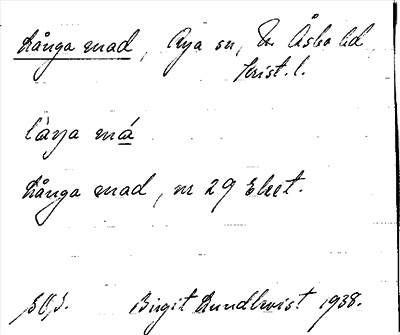 Långa mad, Oya sn, N. Åsbo hd,
Krist. l.
långa må
Långa mad, nr 29 Eket.
Birgit Lundkvist 1938.